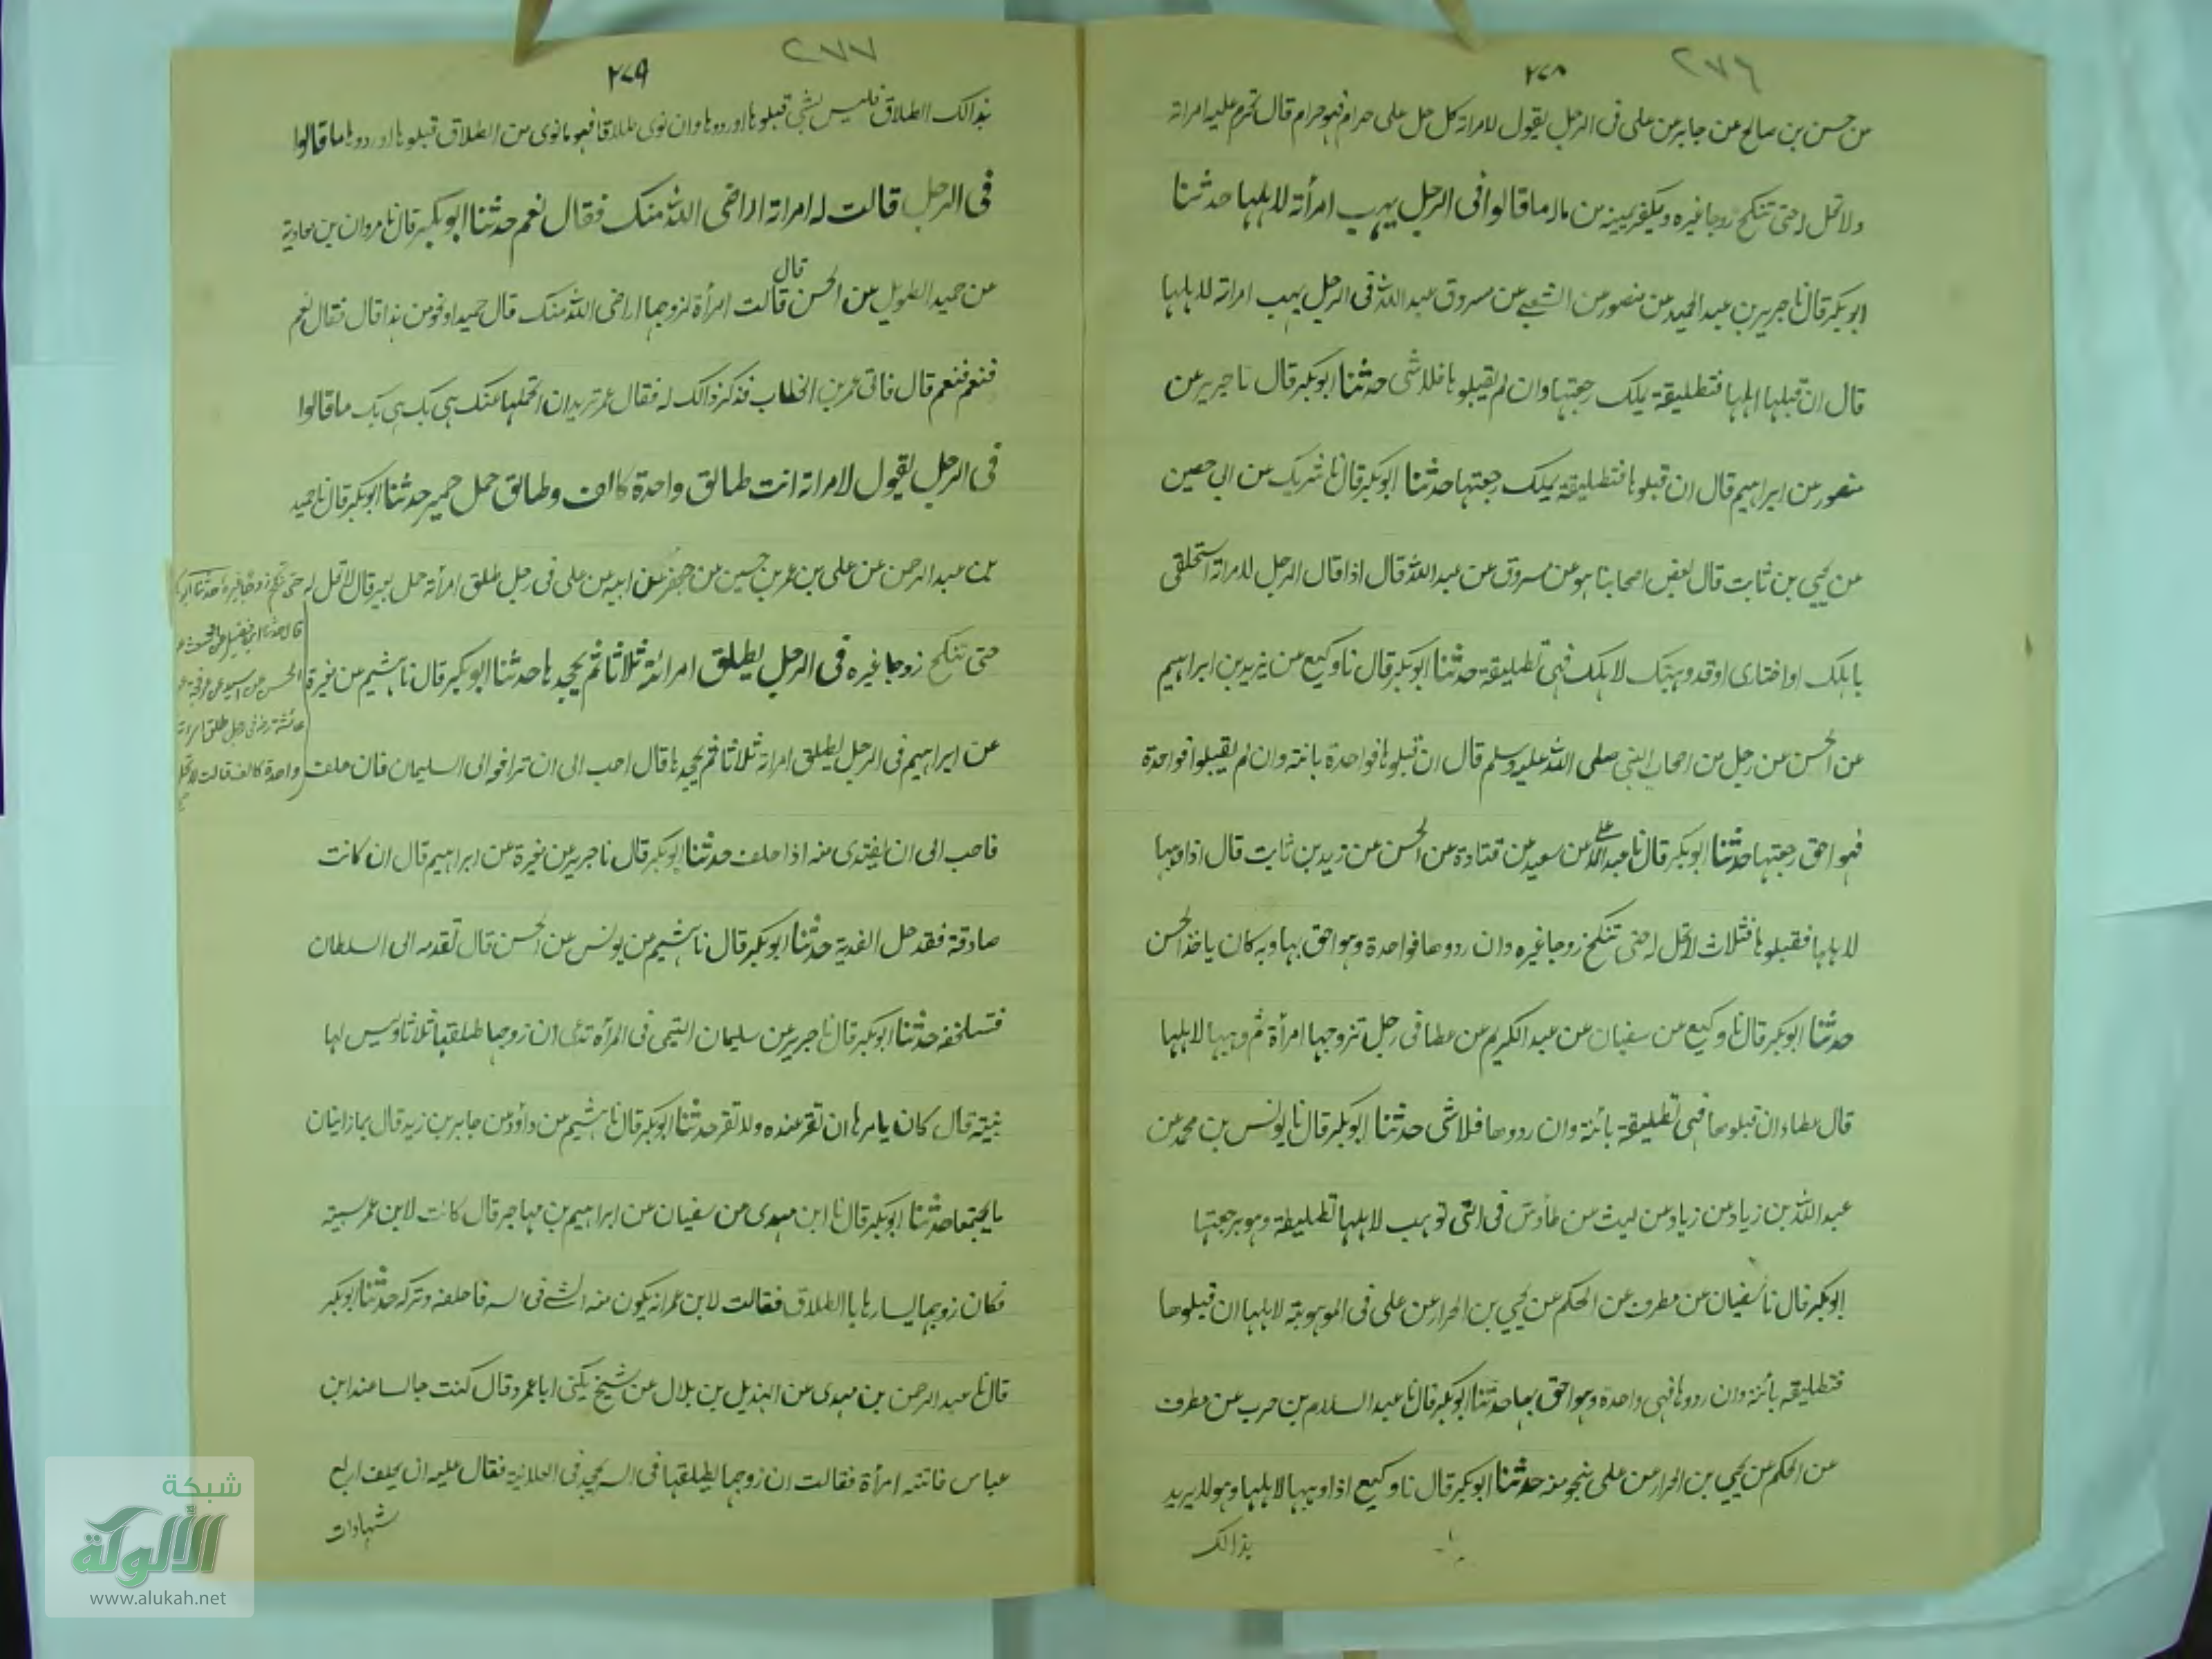 ٢٧٦
٢٧٨
من حسن بن صالح عن جابر عن على فى الرجل يقول لامراته كل حل على حرام فهو حرام قال تحرم عليه امراته
ولا تحل له حتى تنكح زوجا غيره ويكفر يمينه من ماله ما قالوا فى الرجل يهب امرأته لاهلها حدثنا
ابو بكر قال نا جرير بن عبد الحميد عن منصور عن الشعبى عن مسروق عبد الله فى الرجل يهب امراته لاهلها
قال ان قبلها اهلها فتطليقة يملك رجعتها وان لم يقبلوها فلا شى حدثنا ابو بكر قال نا جرير عن
منصور عن ابراهيم قال ان قبلوها فتطليقة يملك رجعتها حدثنا ابو بكر قال نا شريك عن ابى حصين
عن يحيى بن ثابت قال بعض اصحابنا هو عن مسروق عن عبد الله قال اذا قال الرجل لامراته استحلقى
باهلك او اختارى او قد وهبتك لاهلك فهى تطليقة حدثنا ابو بكر قال نا وكيع عن يزيد بن ابراهيم
عن الحسن عن رجل من اصحاب النبى صلى الله عليه وسلم قال ان قبلوها فواحدة بائنة وان لم يقبلوا فواحدة
فهو احق رجعتها حدثنا ابو بكر قال نا عبد الله عن سعيد عن قتادة عن الحسن عن زيد بن ثابت قال اذا وهبها
لاهلها فقبلوها فثلاث لا تحل له حتى تنكح زوجا غيره وان ردوها فواحدة وهو احق بها وبه كان ياخذ الحسن
حدثنا ابو بكر قال نا وكيع عن سفيان عن عبد الكريم عن عطا فى رجل تزوجها امرأة ثم وهبها لاهلها
قال عطاء ان قبلوها فهى تطليقة بائنة وان ردوها فلا شى حدثنا ابو بكر قال نا يونس بن محمد عن
عبد الله بن زياد عن زياد عن ليث عن طاؤس فى التى توهب لاهلها تطليقة وهو برجعتها
ابو بكر قال نا سفيان عن مطرف عن الحكم عن يحيى بن الجزار عن على فى الموهوبة لاهلها ان قبلوها
فتطليقة بائنة وان ردوها فهى واحدة وهو احق بها حدثنا ابو بكر قال نا عبد السلام بن حرب عن مطرف
عن الحكم عن يحيى بن الجزار عن على بنحو منه حدثنا ابو بكر قال نا وكيع اذا وهبها لاهلها وهو لا يريد
بذالك
٢٧٧
٢٧٩
بذالك الطلاق فليس بشى قبلوها او ردوها وان نوى طلاقا فهو ما نوى من الطلاق قبلوها او ردوها ما قالوا
فى الرجل قالت له امراته اراضى الله منك فقال نعم حدثنا ابو بكر قال نا مروان بن معاوية
عن حميد الطويل عن الحسن قال قالت امرأة لزوجها اراضى الله منك قال حميد او نحو من هذا قال فقال نعم
فنعم فنعم قال فاتى عمر بن الخطاب فذكر ذالك له فقال عمر تريد ان اتحملها عنك هى بك هى بك ما قالوا
فى الرجل يقول لامراته انت طالق واحدة كالف وطالق حمل حمير حدثنا ابو بكر قال نا حميد
بن عبد الرحمن عن على بن عمر بن حسين عن جعفر عن ابيه عن على فى رجل طلق امرأته حمل بعير قال لا تحل له حتى تنكح زوجا غيره حدثنا ابو بكر
قال حدثنا ابن فضيل عن
الحسن عن
عائشة رض فى رجل طلق امراته
واحدة كالف قالت لا تحل
حتى تنكح زوجا غيره فى الرجل يطلق امرأته ثلاثا ثم يجحدها حدثنا ابو بكر قال نا هشيم عن مغيرة
عن ابراهيم فى الرجل يطلق امراته ثلاثا ثم يجحدها قال احب الى ان ترافعه الى السليمان فان حلف
فاحب الى ان يفتدى منه اذا حلف حدثنا ابو بكر قال نا جرير عن مغيرة عن ابراهيم قال ان كانت
صادقة فقد حل الفدية حدثنا ابو بكر قال نا هشيم عن يونس عن الحسن قال تقدمه الى السلطان
فتستحلفه حدثنا ابو بكر قال نا جرير عن سليمان التيمى فى المرأة تدعى ان زوجها طلقها ثلاثا وليس لها
بينة قال كان يامرها ان تقر عنده ولا تقر حدثنا ابو بكر قال نا هشيم عن داؤد عن جابر بن زيد قال هما زانيان
ما اجتمعا حدثنا ابو بكر قال نا ابن مهدى عن سفيان عن ابراهيم بن مهاجر قال كانت لابن عمر
فكان زوجها يسارها بالطلاق فقالت لابن عمر انه يكون منه الشى فى السر فاحلفه وتركه حدثنا ابو بكر
قال نا عبد الرحمن بن مهدى عن الهذيل بن بلال عن شيخ يكنى ابا عمر وقال كنت جالسا عند ابن
عباس فاتته امرأة فقالت ان زوجها يطلقها فى السر يجحد فى العلانية فقال عليه ان يحلف اربع
شهادات
شبكة
الألوكة
www.alukah.net